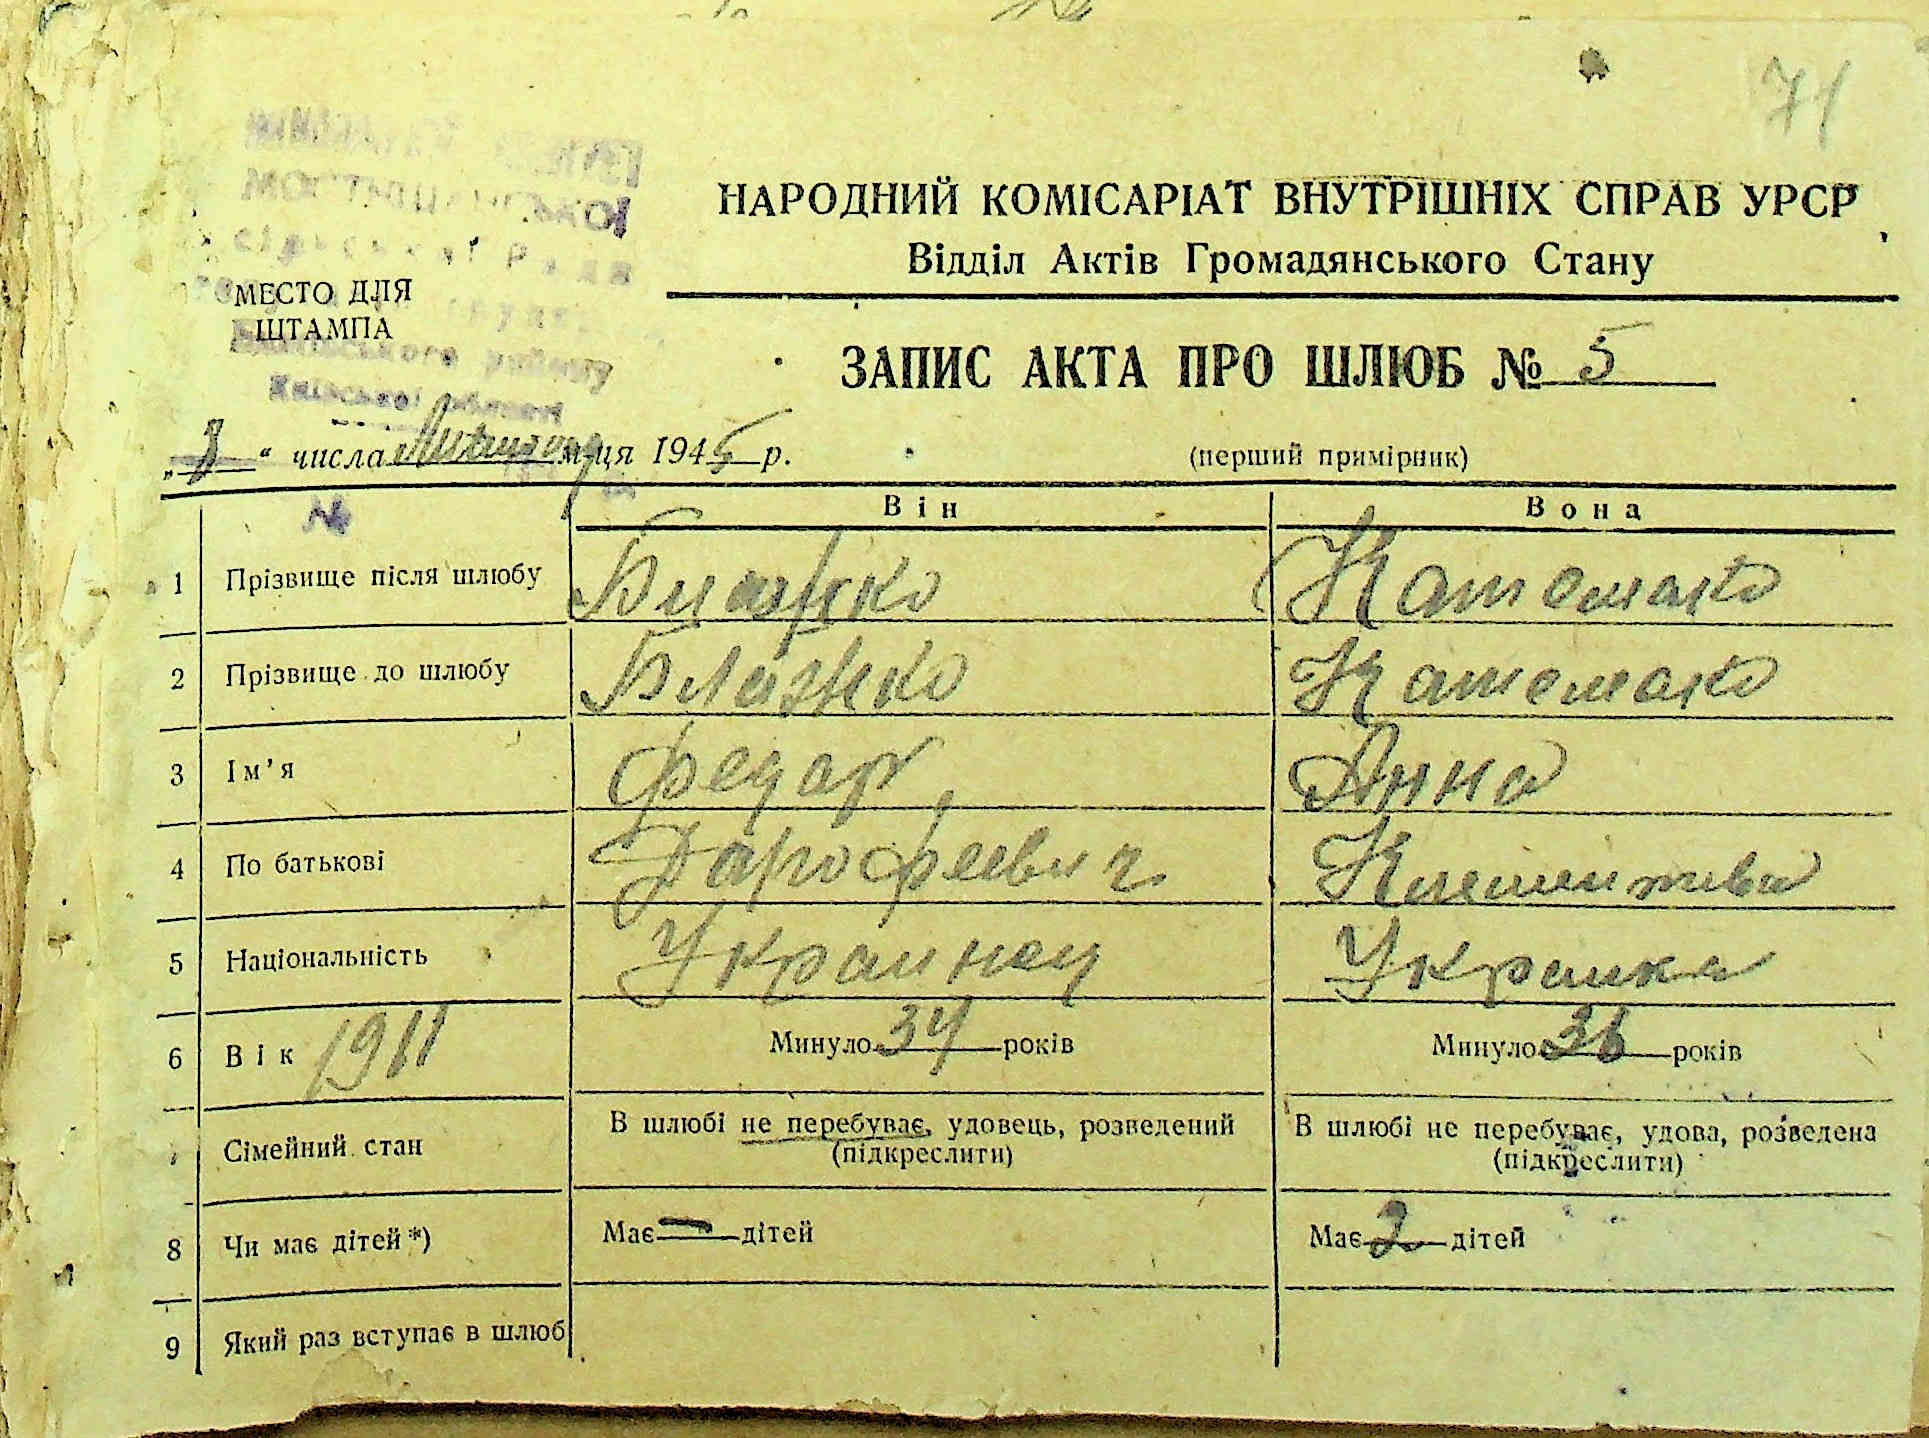 71
НАРОДНИЙ КОМІСАРІАТ ВНУТРІШНІХ СПРАВ УРСР
Відділ Актів Громадянського Стану
МЕСТО ДЛЯ
ШТАМПА
району
Київської області
ЗАПИС АКТА ПРО ШЛЮБ № 5
„ “ числа м-ця 1945 р.
(перший примірник)
№
Він Вона
1 Прізвище після шлюбу Блажко Катемако
2 Прізвище до шлюбу Блажко Катемако
3 Ім’я Федар Анна
4 По батькові Дарофеевич Клементева
5 Національність Украинец Украинка
6 Вік 1911 Минуло 34 років Минуло 36 років
Сімейний стан В шлюбі не перебуває, удовець, розведений (підкреслити) В шлюбі не перебуває, удова, розведена (підкреслити)
8 Чи має дітей *) Має — дітей Має 2 дітей
9 Який раз вступає в шлюб